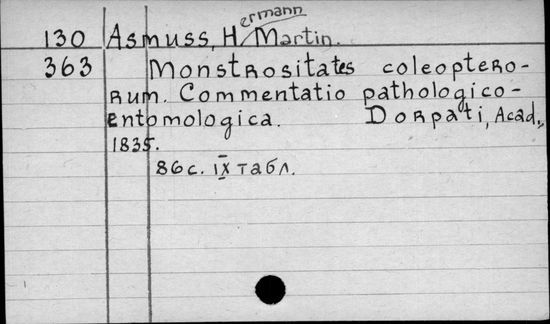 130 Asmuss, Hermann Martin.
363 Monstrositates coleoptero-
rum. Commentatio pathologico-
entomologica. Dorpati, Acad.,
1835.
86 с. IX табл.